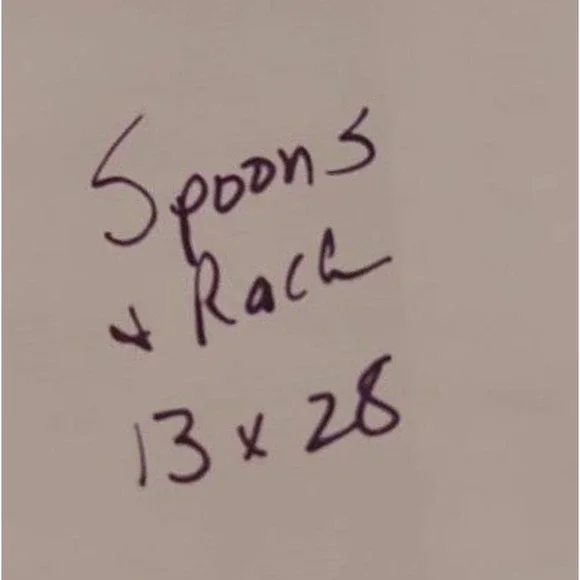 Spoons
+ Rack
13 x 28